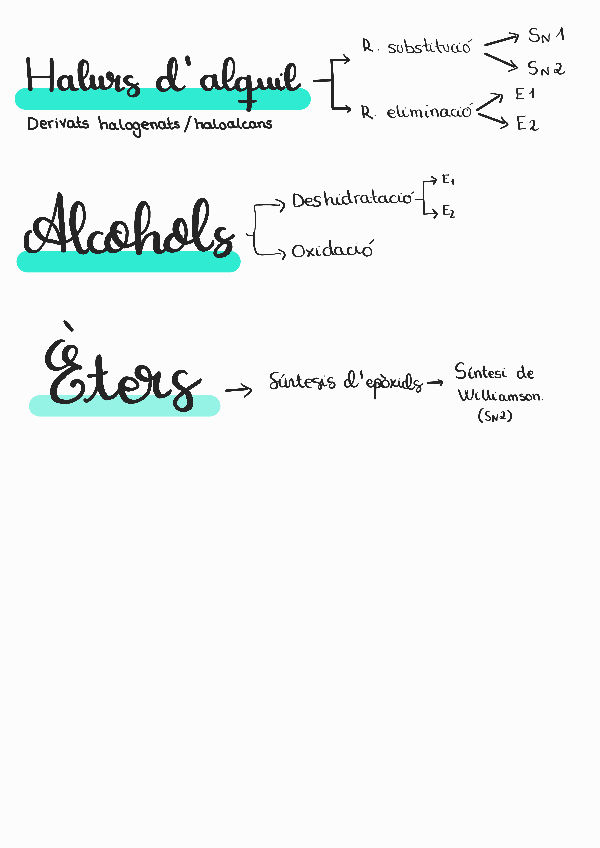 Halurs d'alquil
Derivats halogenats/haloalcans
R. substitució
SN1
SN2
R. eliminació
E1
E2
Alcohols
Deshidratació
E1
E2
Oxidació
Èters
Síntesis d'epòxids
Síntesi de
Williamson.
(SN2)